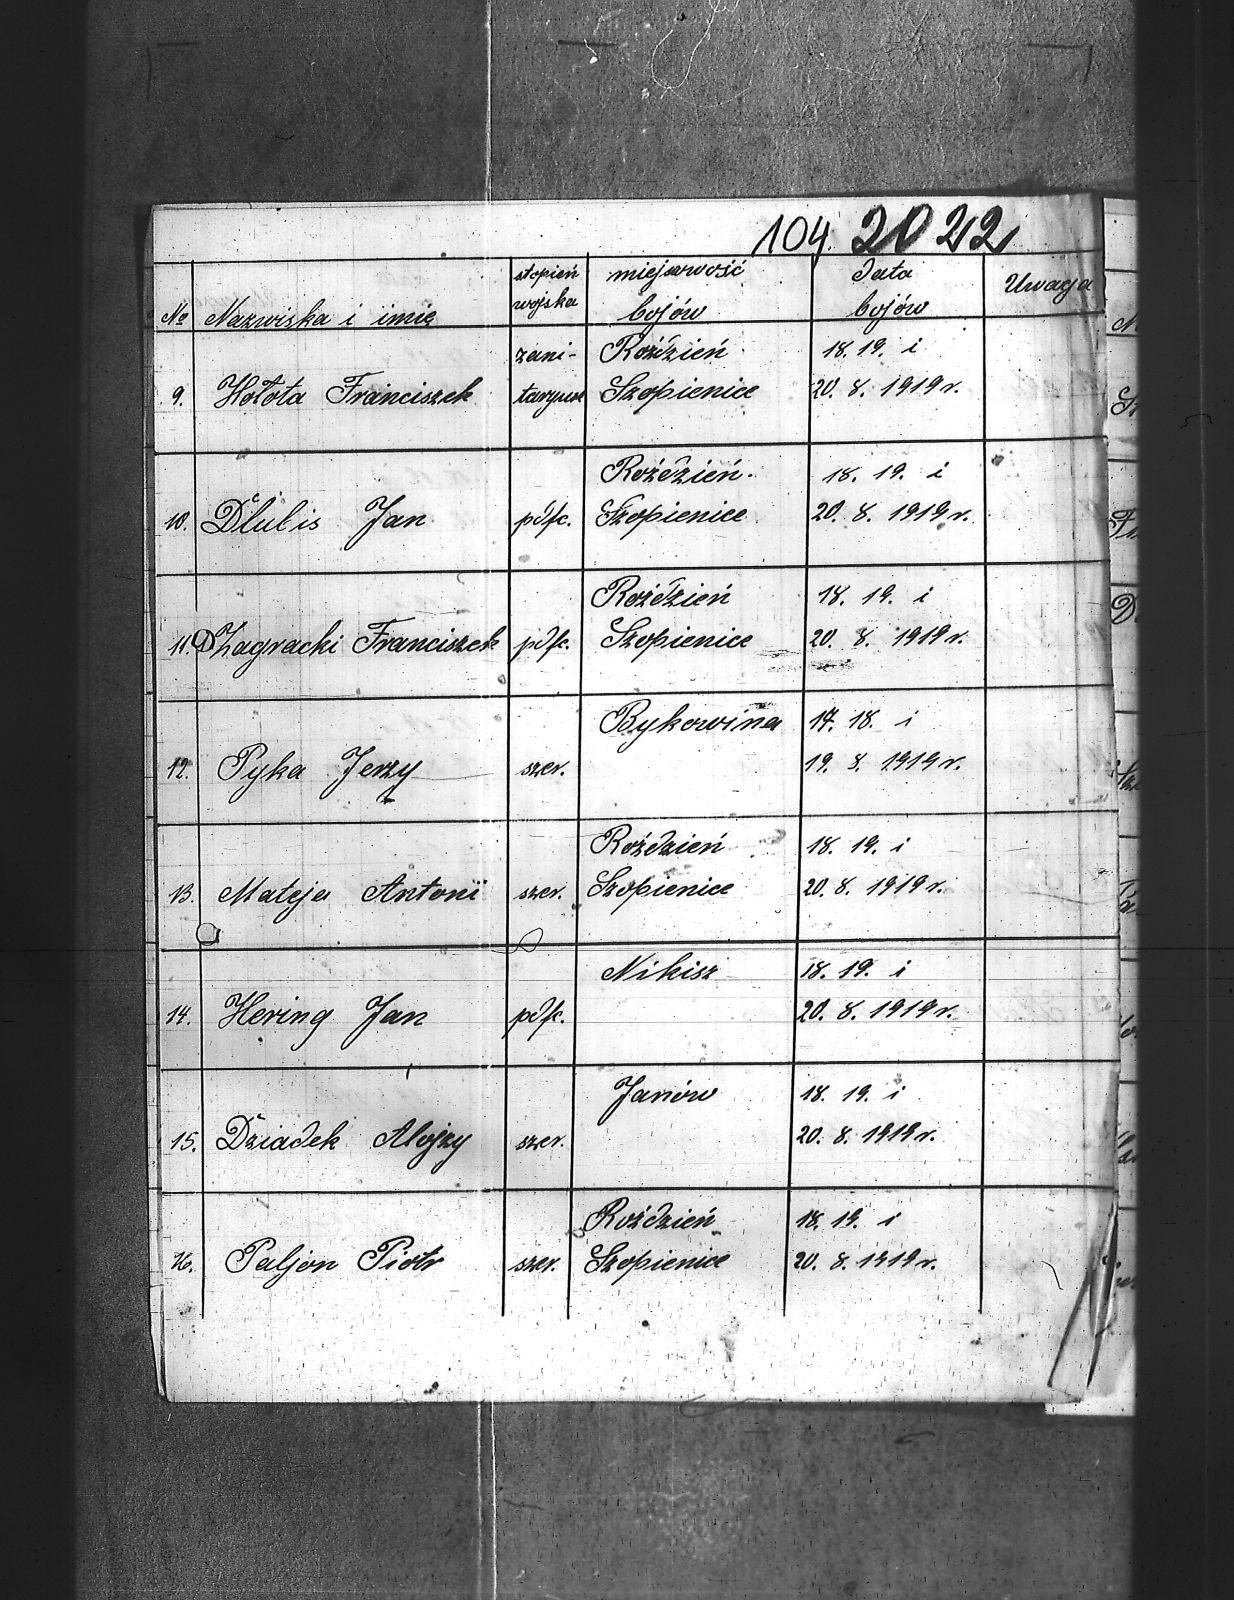 104. 2022
№ Nazwiska i imię stopień wojska miejscowość bojów Data bojów Uwaga
zani- Roździen 18. 19. i
9. Hołota Franciszek taryusz Szopienice 20. 8. 1919 r.
Roździeń 18. 19. i
10. Dlubis Jan pdfc. Szopienice 20. 8. 1919 r.
Roździeń 18. 19. i
11. Zagracki Franciszek pdfc. Szopienice 20. 8. 1919 r.
Bykowina 17. 18. i
12. Pyka Jerzy szer. 19. 8. 1919 r.
Roździeń 18. 19. i
13. Mateja Antoni szer. Szopienice 20. 8. 1919 r.
Nikisz 18. 19. i
14. Hering Jan pdfc. 20. 8. 1919 r.
Janów 18. 19. i
15. Dziadek Alojzy szer. 20. 8. 1919 r.
Roździeń 18. 19. i
16. Paljon Piotr szer. Szopienice 20. 8. 1919 r.